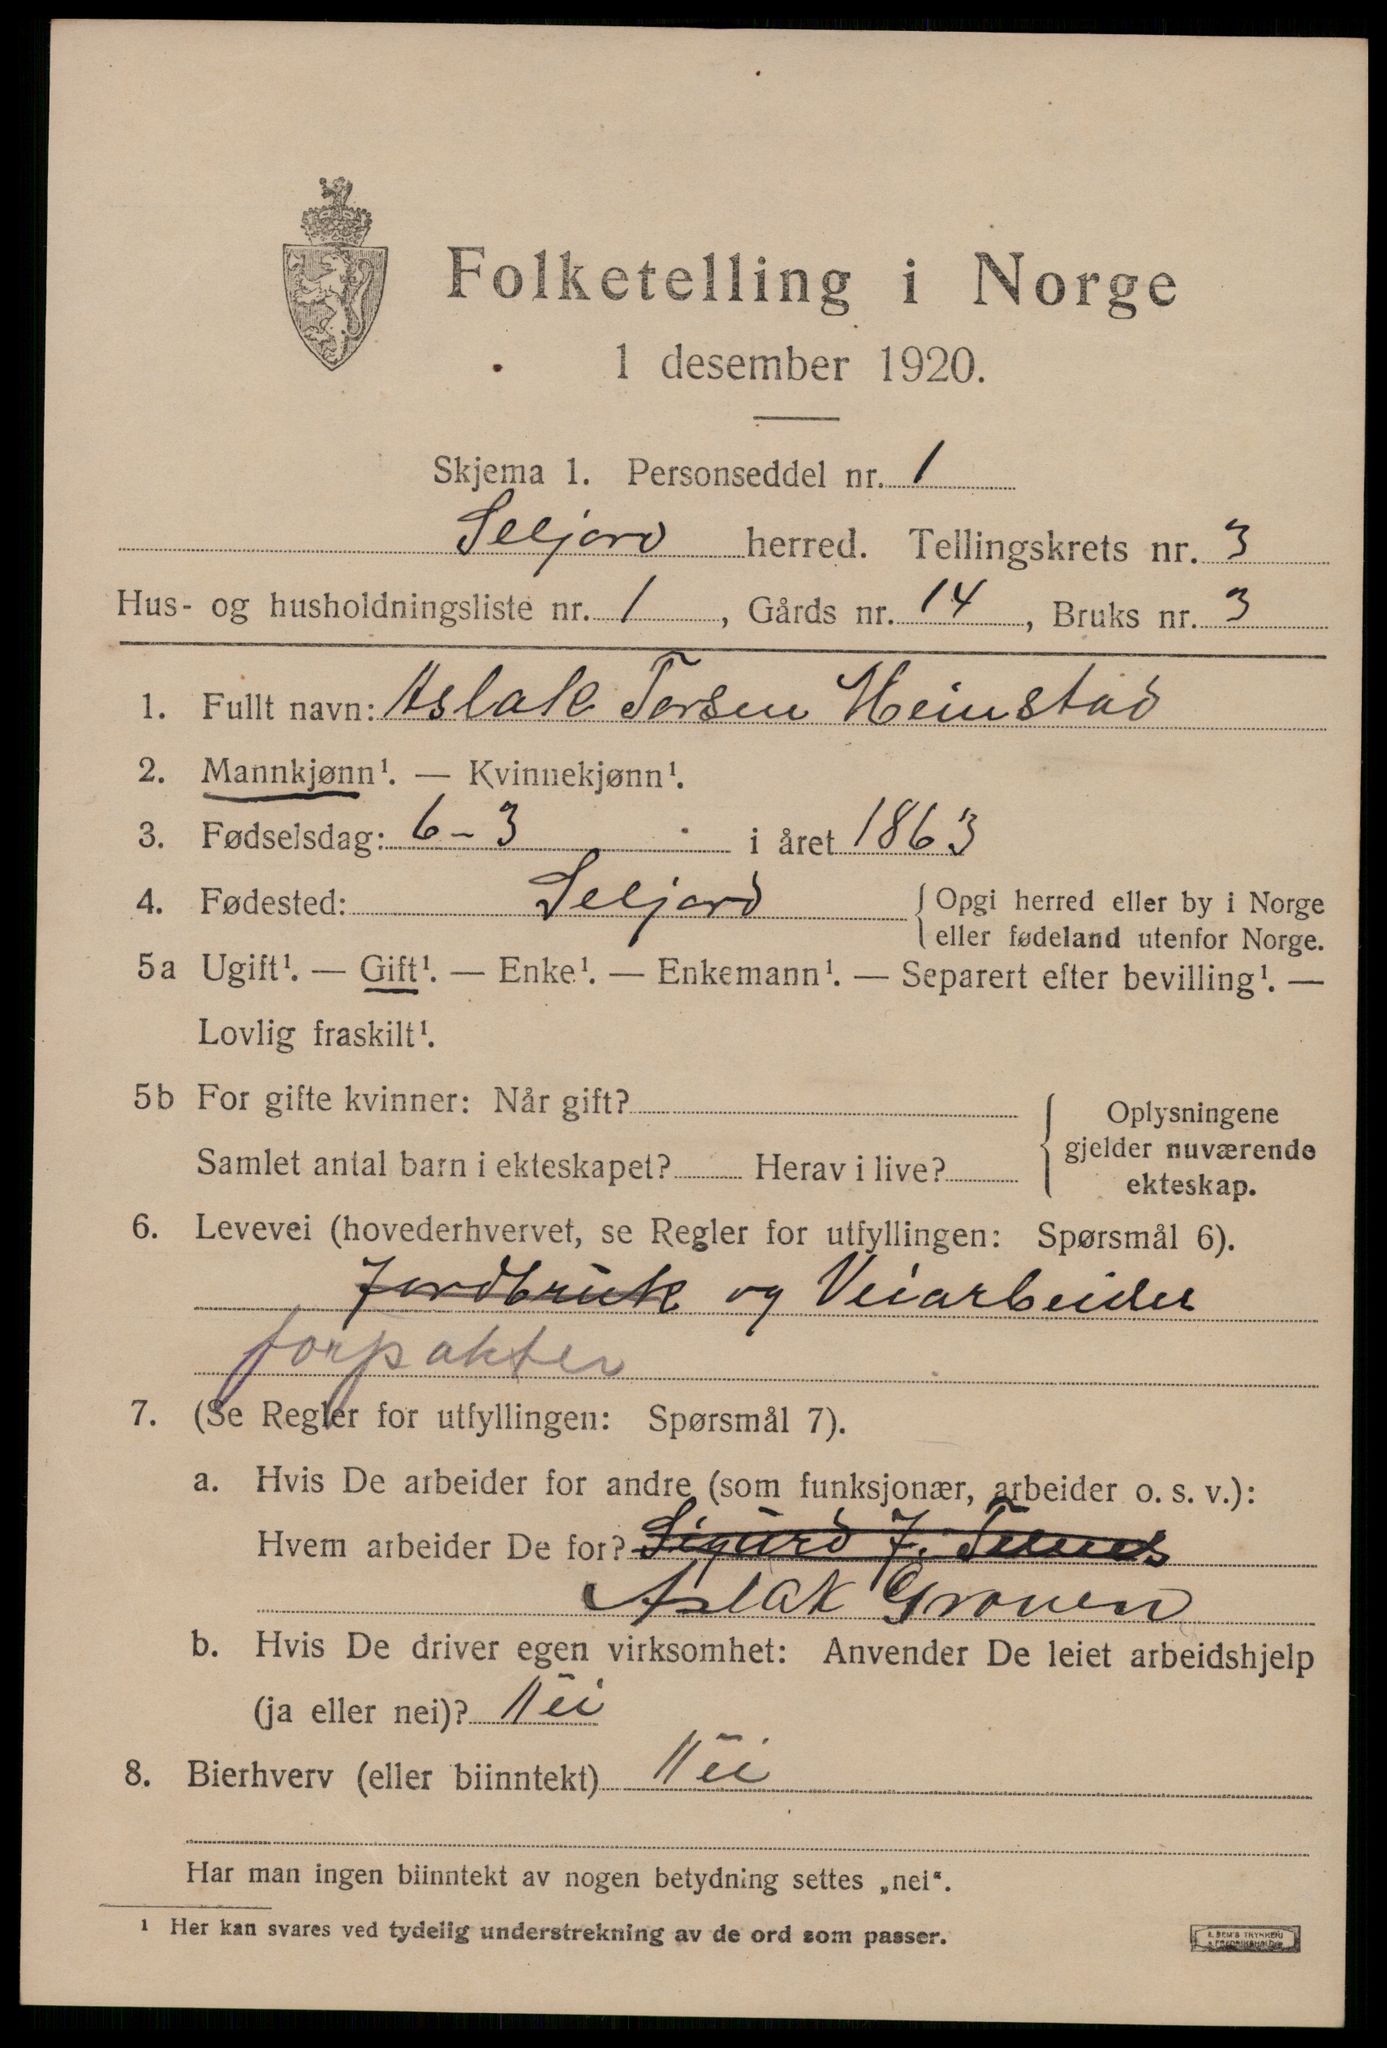 Folketelling i Norge
1 desember 1920.
Skjema 1. Personseddel nr. 1
Seljord herred. Tellingskrets nr. 3
Hus- og husholdningsliste nr. 1, Gårds nr. 14, Bruks nr. 3
1. Fullt navn: Aslak Torsen Heimstad
2. Mannkjønn¹. — Kvinnekjønn¹.
3. Fødselsdag: 6-3 i året 1863
4. Fødested: Seljord { Opgi herred eller by i Norge
eller fødeland utenfor Norge.
5a Ugift¹. — Gift¹. — Enke¹. — Enkemann¹. — Separert efter bevilling¹. —
Lovlig fraskilt¹.
5b For gifte kvinner: Når gift?
Samlet antal barn i ekteskapet? Herav i live?
Oplysningene
gjelder nuværende
ekteskap.
6. Levevei (hovederhvervet, se Regler for utfyllingen: Spørsmål 6).
Jordbruk og Veiarbeider
forpakter
7. (Se Regler for utfyllingen: Spørsmål 7).
a. Hvis De arbeider for andre (som funksjonær, arbeider o. s. v.):
Hvem arbeider De for? Sigurd J.
Aslak Grouen
b. Hvis De driver egen virksomhet: Anvender De leiet arbeidshjelp
(ja eller nei)? Nei
8. Bierhverv (eller biinntekt) Nei
Har man ingen biinntekt av nogen betydning settes „nei“.
¹ Her kan svares ved tydelig understrekning av de ord som passer.